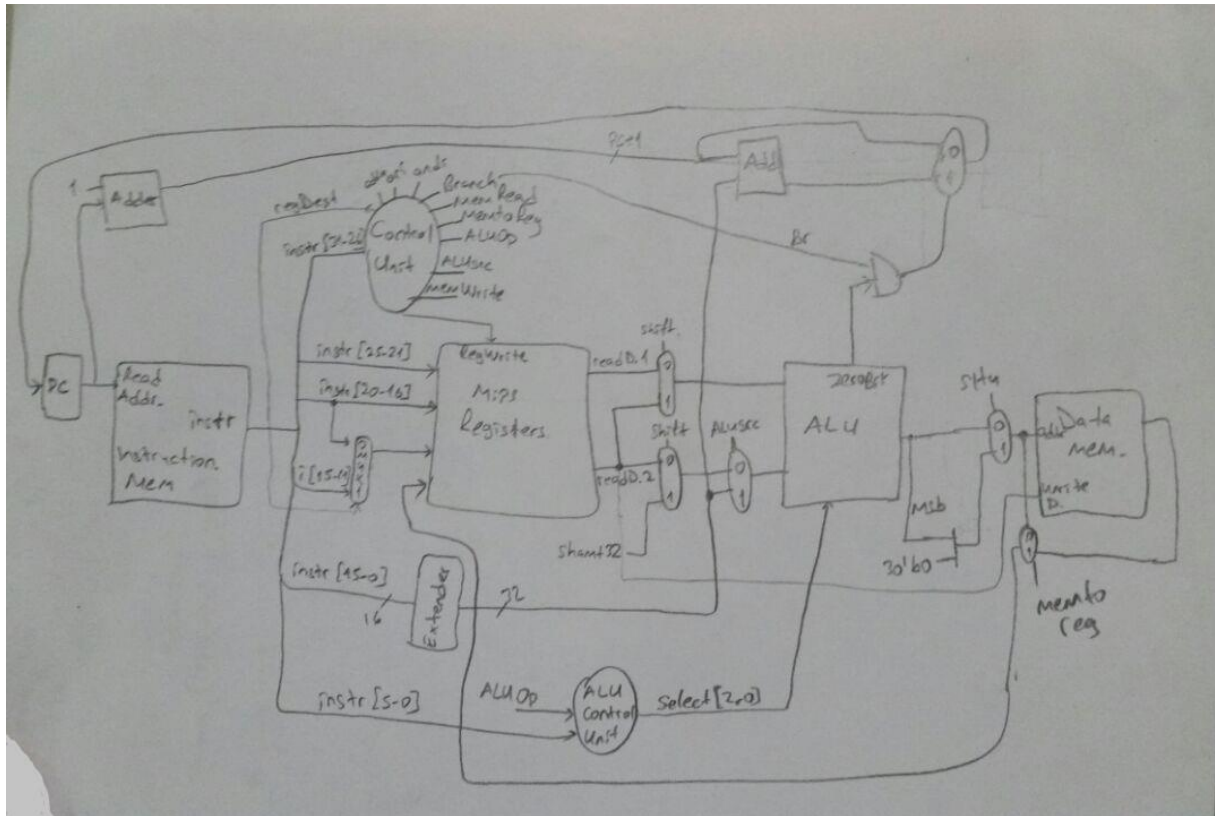 PC+1
1
Adder
Add
0
1
regDest
Branch
MemRead
MemtoReg
ALUOp
ALUsrc
memWrite
Control
Unit
instr[31-26]
Br
PC
Read
Addr.
instr
Instruction
Mem
instr[25-21]
instr[20-16]
i[15-11]
RegWrite
Mips
Registers
readD.1
readD.2
shift
0
1
shift
0
1
ALUsrc
0
1
shamt32
ALU
sltu
0
1
Msb
Data
mem.
write
D.
memto
reg
instr[15-0]
16
Extender
32
instr[5-0]
ALUOp
ALU
Control
Unit
select[2-0]